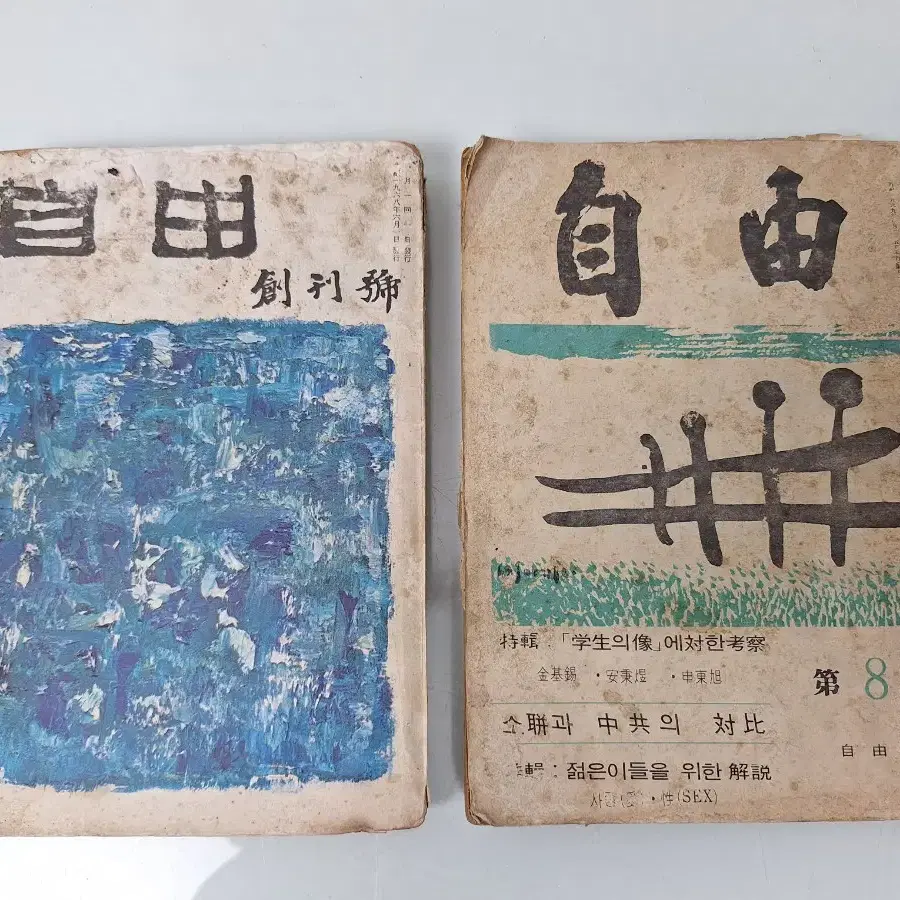 自由
創刊號
一九六八年六月一日發行
自由
特輯 : 「学生의像」에対한考察
金基錫 · 安秉煜 · 申東旭
소聯과 中共의 対比
輯 : 젊은이들을 위한 解説
사랑(愛) · 性(SEX)
第8
自由